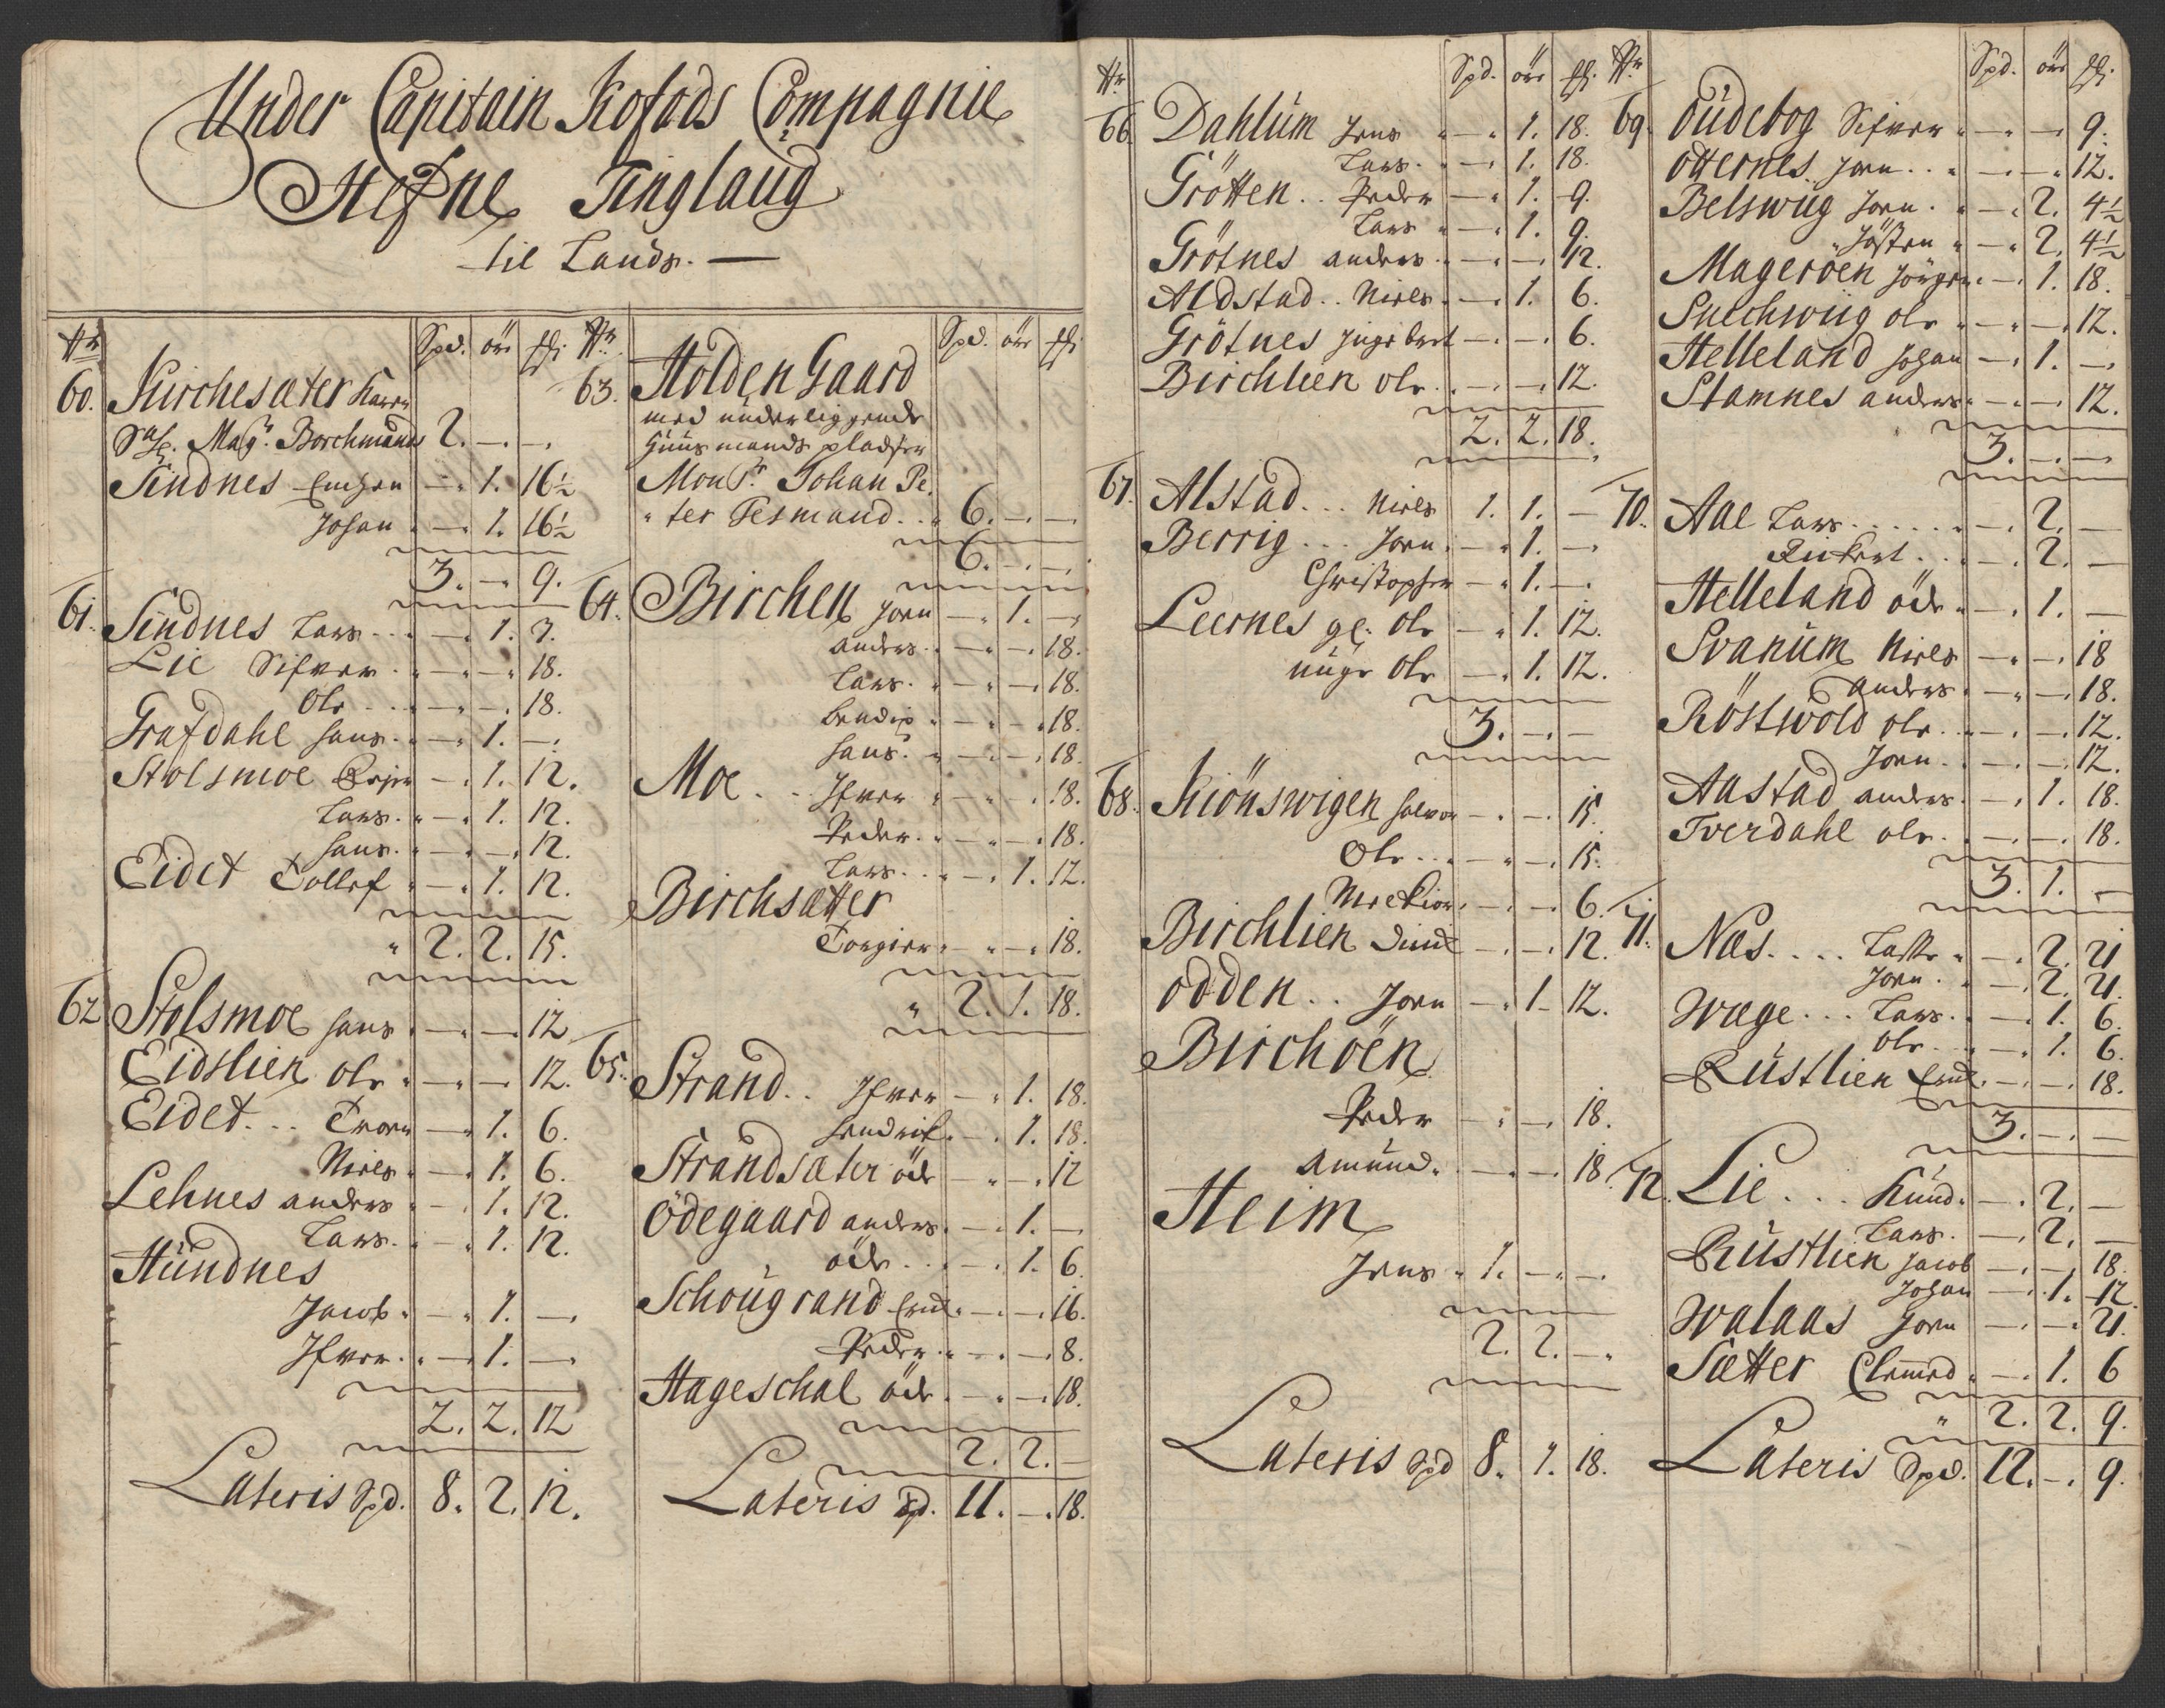 Under Capitain Kofods Compagnie
Hefne Tinglaug
til Lands. —
Nr Spd. öre ß
60. Kirchesæter
Sal. Magr. Borchmands 2. — . —
Sindnes — . 1. 16½
Johan — . 1. 16½
3. — . 9.
61. Sindnes Lars — . 1. 3.
Lie Sifver — . — . 18.
Ole — . — . 18.
Grafdahl Hans — . 1. —
Stolsmoe — . 1. 12.
Lars. — . 1. 12.
Hans. — . — . 12.
Eidet Tollef — . 1. 12.
2. 2. 15.
62 Stolsmoe Hans — . — . 12
Eidslien Ole — . — . 12.
Eidet... — . 1. 6.
Niels — . 1. 6.
Lehnes Anders — . 1. 12.
Lars. — . 1. 12.
Hundnes
Jacob — . 1. —
Ifver — . 1. —
2. 2. 12
Lateris Spd. 8. 2. 12.
Nr Spd. öre ß
63. Holden Gaard
med underliggende
Huusmands pladser
Monsr. Johan Pe-
ter Tesmand... 6. — . —
6. — . —
64. Birchen Joen — . 1. —
Anders — . — . 18.
Lars. — . — . 18.
Bendix — . — . 18.
Hans. — . — . 18.
Moe.. Ifver — . — . 18.
Peder. — . — . 18.
Lars.. — . 1. 12.
Birchsætter
Torgier — . — . 18.
2. 1. 18.
65. Strand.. Ifver — . 1. 18.
Hendrik — . 1. 18.
Strandsæter öde — . — . 12
Ödegaard Anders. — . 1. —
öde... — . 1. 6.
Schougrand — . — . 16.
Peder. — . — . 8.
Hageschal öde. — . — . 18.
2. 2. —
Lateris Spd. 11. — . 18.
Nr Spd. öre ß
66. Dahlum Jens — . 1. 18.
Lars. — . 1. 18.
Grötten.. Peder — . 1. 9.
Lars — . 1. 9.
Grötnes Anders. — . — . 12.
Aldstad.. Niels. — . 1. 6.
Grötnes Ingebret — . — . 6.
Birchlien Ole. — . — . 12.
2. 2. 18.
67. Alstad... Niels 1. 1. —
Berrig... Joen. — . 1. —
Christopher — . 1. —
Leernes gl. Ole — . 1. 12.
unge Ole — . 1. 12.
3. — . —
68. Kiönswigen Halvor — . — . 15.
Ole.. — . — . 15.
— . — . 6.
Birchlien — . — . 12.
Odden.. Joen — . 1. 12.
Birchöen
Peder — . — . 18.
Amund. — . — . 18
Heim
Jens 1. — . —
2. 2. —
Lateris Spd 8. 1. 18.
Nr Spd. öre ß
69. Oudebog Sifver — . — . 9.
Otternes. Joen.. — . — . 12.
Belswiig Joen. — . 2. 4½
Josten — . 2. 4½
Mageröen Jörgen. — . 1. 18.
Snechwiig Ole — . — . 12.
Helleland Johan — . 1. —
Stamnes Anders — . — . 12.
3. — . —
70. Aae Lars...... — . 2. —
... — . 2. —
Helleland öde. — . 1. —
Svanum Niels — . — . 18
Anders. — . — . 18.
Röstwold Ole.. — . — . 12.
Joen. — . — . 12.
Aastad Anders. — . 1. 18.
Tverdahl Ole. — . — . 18.
3. 1. —
71. Næs.... Lasse — . 2. 21
Joen. — . 2. 21.
Wæge... Lars. — . 1. 6.
Ole — . 1. 6.
Rustlien — . — . 18.
3. — . —
72. Lie... Knud. — . 2. —
Lars. — . 2. —
Rustlien Jacob — . — . 18.
Johan — . 1. 12.
Walaas Joen — . — . 21.
Sætter — . 1. 6
2. 2. 9.
Lateris Spd. 12. — . 9.